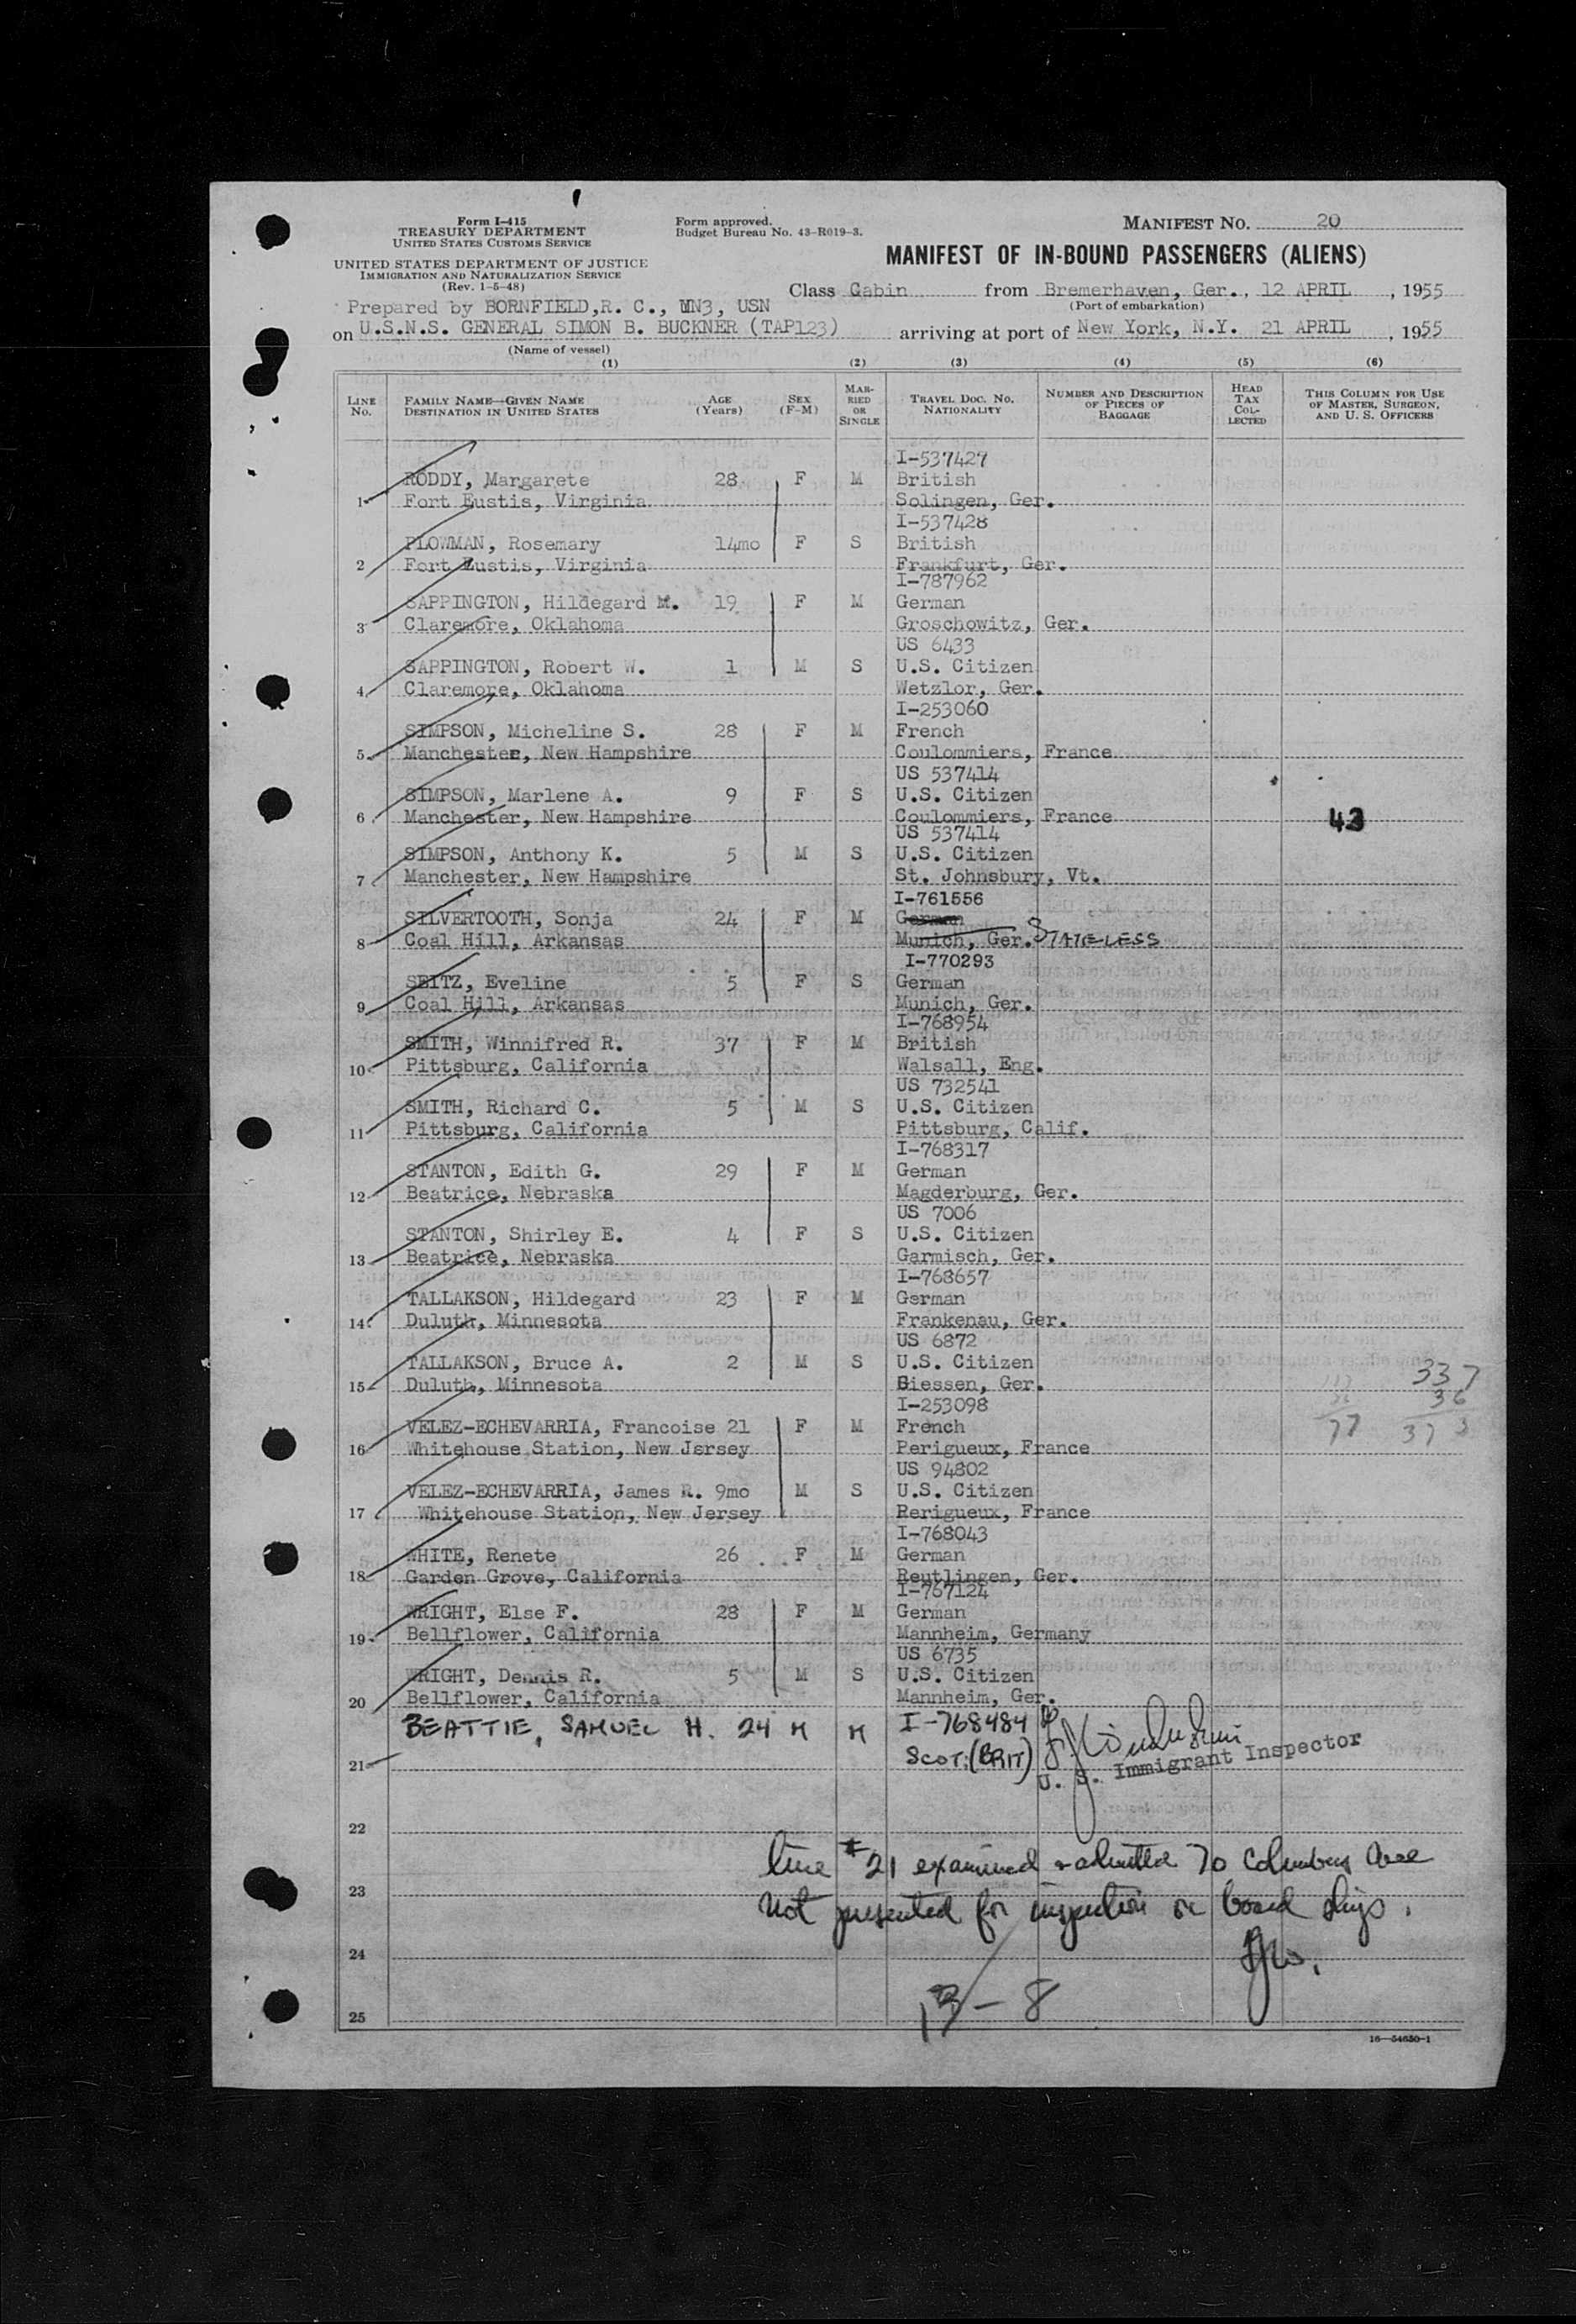 Form I-415
TREASURY DEPARTMENT
UNITED STATES CUSTOMS SERVICE
UNITED STATES DEPARTMENT OF JUSTICE
IMMIGRATION AND NATURALIZATION SERVICE
(Rev. 1-5-48)
Form approved.
Budget Bureau No. 43-R019-3.
MANIFEST NO. 20
MANIFEST OF IN-BOUND PASSENGERS (ALIENS)
Class Cabin from Bremerhaven, Ger., 12 APRIL, 1955
(Port of embarkation)
Prepared by BORNFIELD,R. C., MN3, USN
on U.S.N.S. GENERAL SIMON B. BUCKNER (TAP123) arriving at port of New York, N.Y. 21 APRIL, 1955
(Name of vessel)
(1) (2) (3) (4) (5) (6)
LINE No. FAMILY NAME—GIVEN NAME DESTINATION IN UNITED STATES AGE (Years) SEX (F-M) MARRIED OR SINGLE TRAVEL DOC. NO. NATIONALITY NUMBER AND DESCRIPTION OF PIECES OF BAGGAGE HEAD TAX COLLECTED THIS COLUMN FOR USE OF MASTER, SURGEON, AND U. S. OFFICERS
I-537427
RODDY, Margarete 28 F M British
1 Fort Eustis, Virginia Solingen, Ger.
I-537428
PLOWMAN, Rosemary 14mo F S British
2 Fort Eustis, Virginia Frankfurt, Ger.
I-787962
SAPPINGTON, Hildegard M. 19 F M German
3 Claremore, Oklahoma Groschowitz, Ger.
US 6433
SAPPINGTON, Robert W. 1 M S U.S. Citizen
4 Claremore, Oklahoma Wetzlor, Ger.
I-253060
SIMPSON, Micheline S. 28 F M French
5 Manchester, New Hampshire Coulommiers, France
US 537414
SIMPSON, Marlene A. 9 F S U.S. Citizen
6 Manchester, New Hampshire Coulommiers, France 43
US 537414
SIMPSON, Anthony K. 5 M S U.S. Citizen
7 Manchester, New Hampshire St. Johnsbury, Vt.
I-761556
SILVERTOOTH, Sonja 24 F M German
8 Coal Hill, Arkansas Munich, Ger. STATELESS
I-770293
SEITZ, Eveline 5 F S German
9 Coal Hill, Arkansas Munich, Ger.
I-768954
SMITH, Winnifred R. 37 F M British
10 Pittsburg, California Walsall, Eng.
US 732541
SMITH, Richard C. 5 M S U.S. Citizen
11 Pittsburg, California Pittsburg, Calif.
I-768317
STANTON, Edith G. 29 F M German
12 Beatrice, Nebraska Magderburg, Ger.
US 7006
STANTON, Shirley E. 4 F S U.S. Citizen
13 Beatrice, Nebraska Garmisch, Ger.
I-768657
TALLAKSON, Hildegard 23 F M German
14 Duluth, Minnesota Frankenau, Ger.
US 6872
TALLAKSON, Bruce A. 2 M S U.S. Citizen
337
15 Duluth, Minnesota Giessen, Ger.
36
I-253098
VELEZ-ECHEVARRIA, Francoise 21 F M French
77 373
16 Whitehouse Station, New Jersey Perigueux, France
US 94802
VELEZ-ECHEVARRIA, James R. 9mo M S U.S. Citizen
17 Whitehouse Station, New Jersey Rerigueux, France
I-768043
WHITE, Renete 26 F M German
18 Garden Grove, California Reutlingen, Ger.
I-767124
WRIGHT, Else F. 28 F M German
19 Bellflower, California Mannheim, Germany
US 6735
WRIGHT, Dennis R. 5 M S U.S. Citizen
20 Bellflower, California Mannheim, Ger.
BEATTIE, SAMUEL H. 24 M M I-768484
SCOT. (BRIT)
U. S. Immigrant Inspector
21
22
line #21 examined & admitted 70 Columbus Ave
23
Not presented for inspection on board ship.
24
13-8
25
16—54650-1